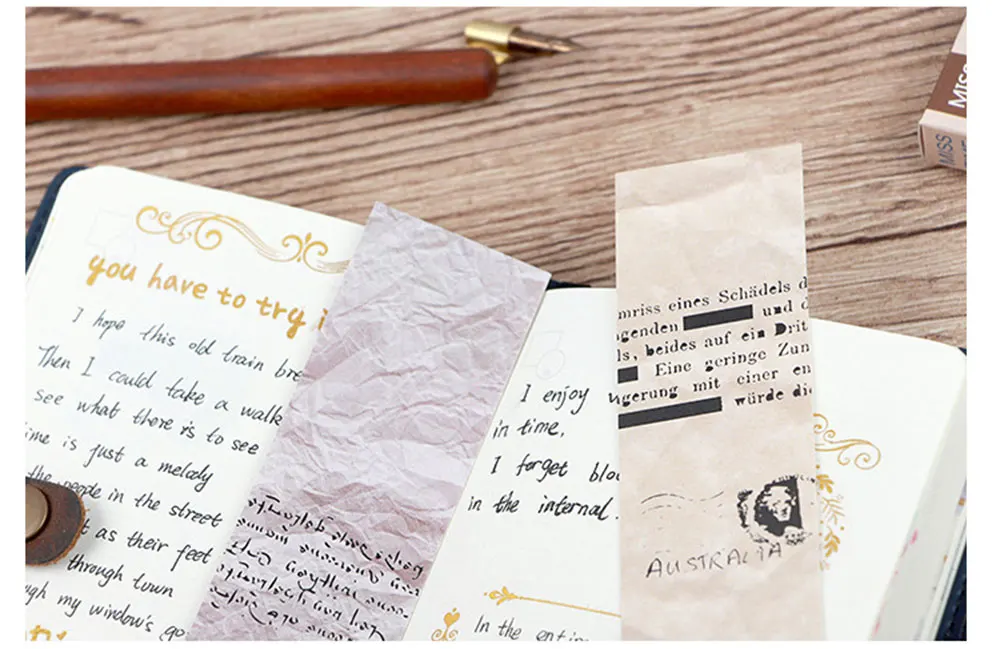 you have to try i
I hope this old train bre
Then I could take a walk
see what there is to see
ime is just a melody
the people in the street
t as their feet
through town
gh my window's go
I enjoy
in time,
I forget bloo
in the internal.
In the entir
mriss eines Schädels d
genden und d
ls, beides auf ein Drit
Eine geringe Zun
gerung mit einer en
würde die
AUSTRALIA
MISS
MISS